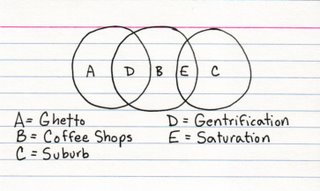 A D B E C
A = Ghetto D = Gentrification
B = Coffee Shops E = Saturation
C = Suburb